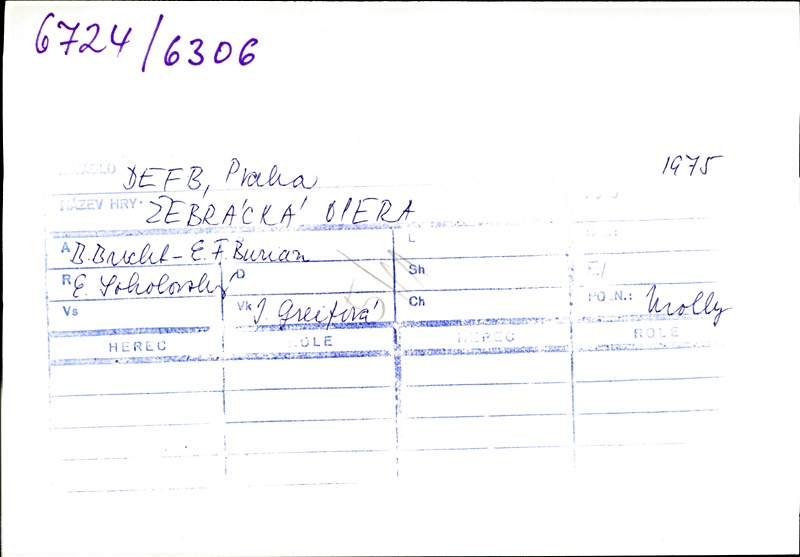 6724/6306
DEFB, Praha 1975
NÁZEV HRY: ŽEBRÁCKÁ OPERA
A B. Brecht - E. F. Burian L
R E. Sokolovský D Sh
Vs Vk J. Greifová Ch POZN.: Molly
HEREC ROLE HEREC ROLE